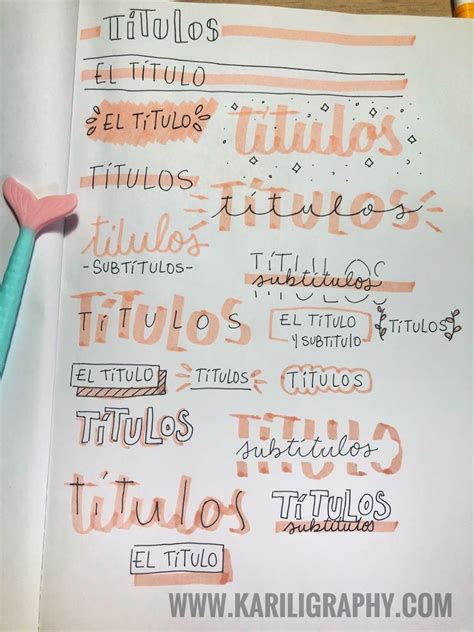 TÍTULOS
EL TÍTULO
EL TÍTULO
títulos
TÍTULOS
títulos
títulos
-SUBTÍTULOS-
TÍTULOS
subtítulos
TÍTULOS
EL TÍTULO
Y SUBTITULO
TÍTULOS
EL TÍTULO
TÍTULOS
TÍTULOS
TÍTULOS
TÍTULO
subtítulos
títulos
TÍTULOS
subtítulos
EL TÍTULO
WWW.KARILIGRAPHY.COM